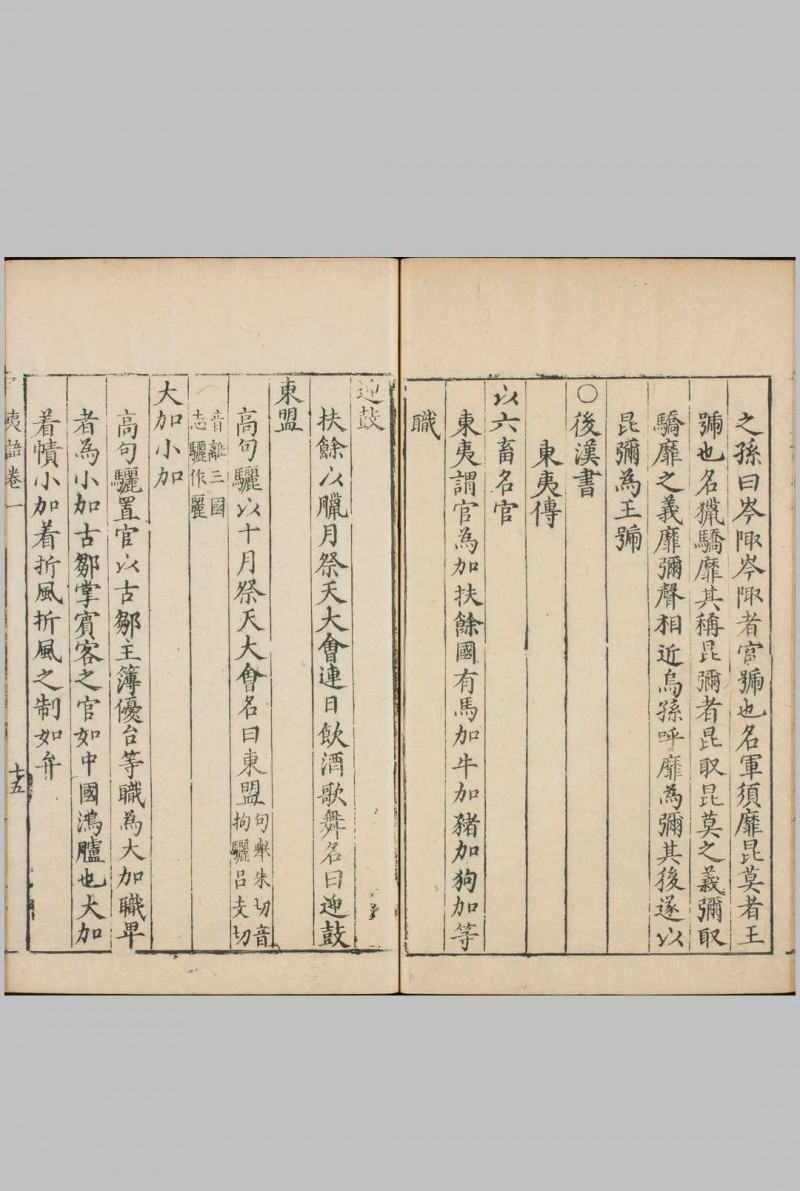 之孫曰岑陬岑陬者官號也名軍須靡昆莫者王
號也名獵驕靡其稱昆彌者昆取昆莫之義彌取
驕靡之義靡彌聲相近烏孫呼靡為彌其後遂以
昆彌為王號
○後漢書
東夷傳
以六畜名官
東夷謂官為加扶餘國有馬加牛加豬加狗加等
職
迎鼓
扶餘以臘月祭天大會連日飲酒歌舞名曰迎鼓
東盟
高句驪以十月祭天大會名曰東盟句舉朱切音
拘驪呂支切
音離三國
志驪作麗
大加小加
高句驪置官以古鄒主簿優台等職為大加職卑
者為小加古鄒掌賓客之官如中國鴻臚也大加
着幘小加着折風折風之制如弁
夷語卷一
十五